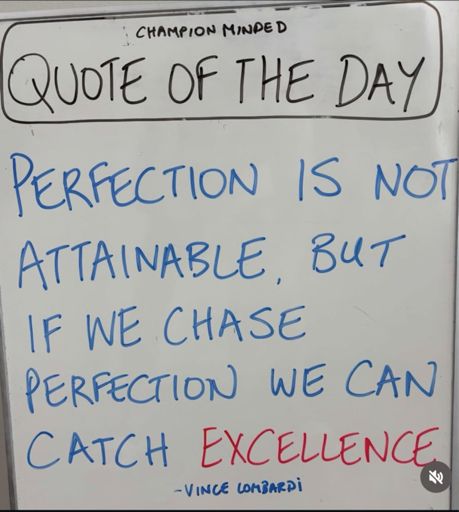 CHAMPION MINDED
QUOTE OF THE DAY
PERFECTION IS NOT
ATTAINABLE, BUT
IF WE CHASE
PERFECTION WE CAN
CATCH EXCELLENCE
-VINCE LOMBARDi